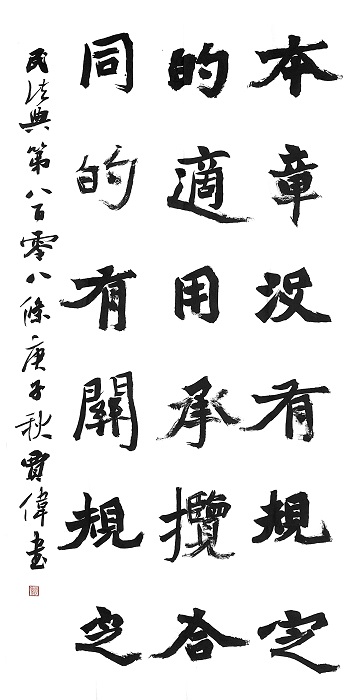 本章没有规定
的適用承攬合
同的有關规定
民法典第八百零八條庚子秋賈偉书